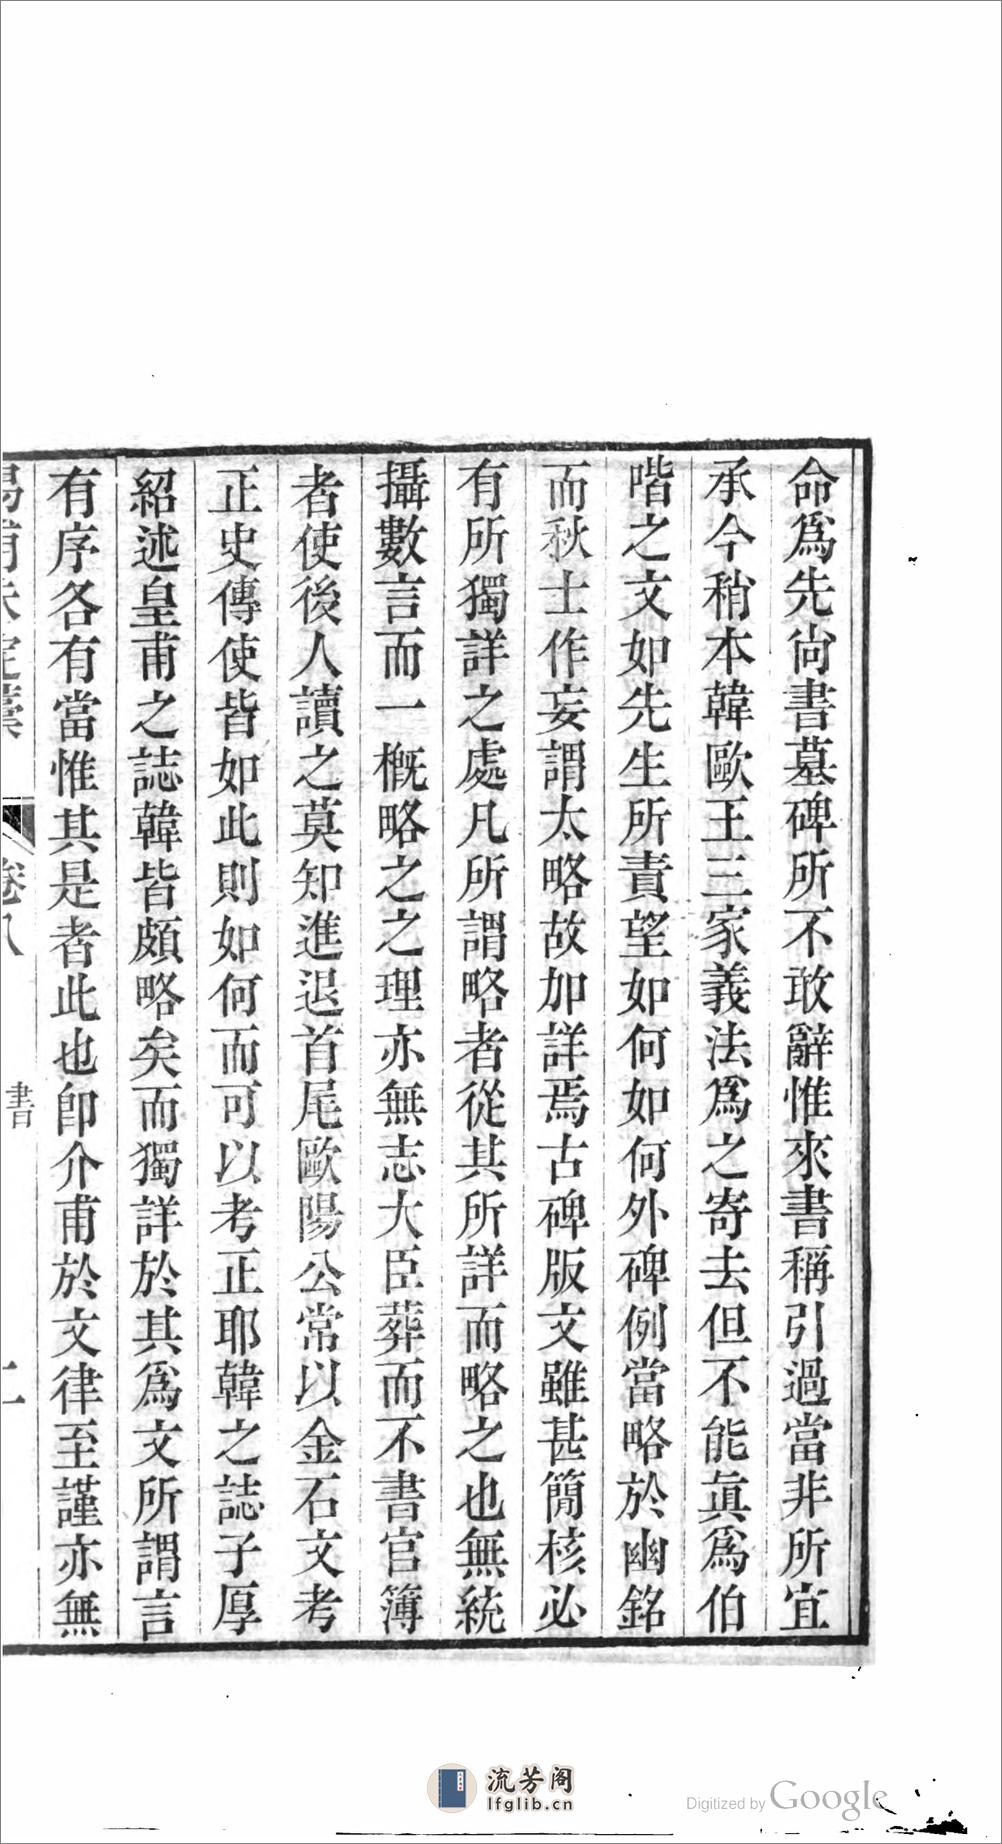 命爲先尚書墓碑所不敢辭惟來書稱引過當非所宜
承今稍本韓歐王三家義法爲之寄去但不能眞爲伯
喈之文如先生所責望如何如何外碑例當略於幽銘
而秋士作妄謂太略故加詳焉古碑版文雖甚簡核必
有所獨詳之處凡所謂略者從其所詳而略之也無統
攝數言而一槪略之之理亦無志大臣葬而不書官簿
者使後人讀之莫知進退首尾歐陽公常以金石文考
正史傳使皆如此則如何而可以考正耶韓之誌子厚
紹述皇甫之誌韓皆頗略矣而獨詳於其爲文所謂言
有序各有當惟其是者此也卽介甫於文律至謹亦無
卷八
書
流芳阁
lfglib.cn
Digitized by Google